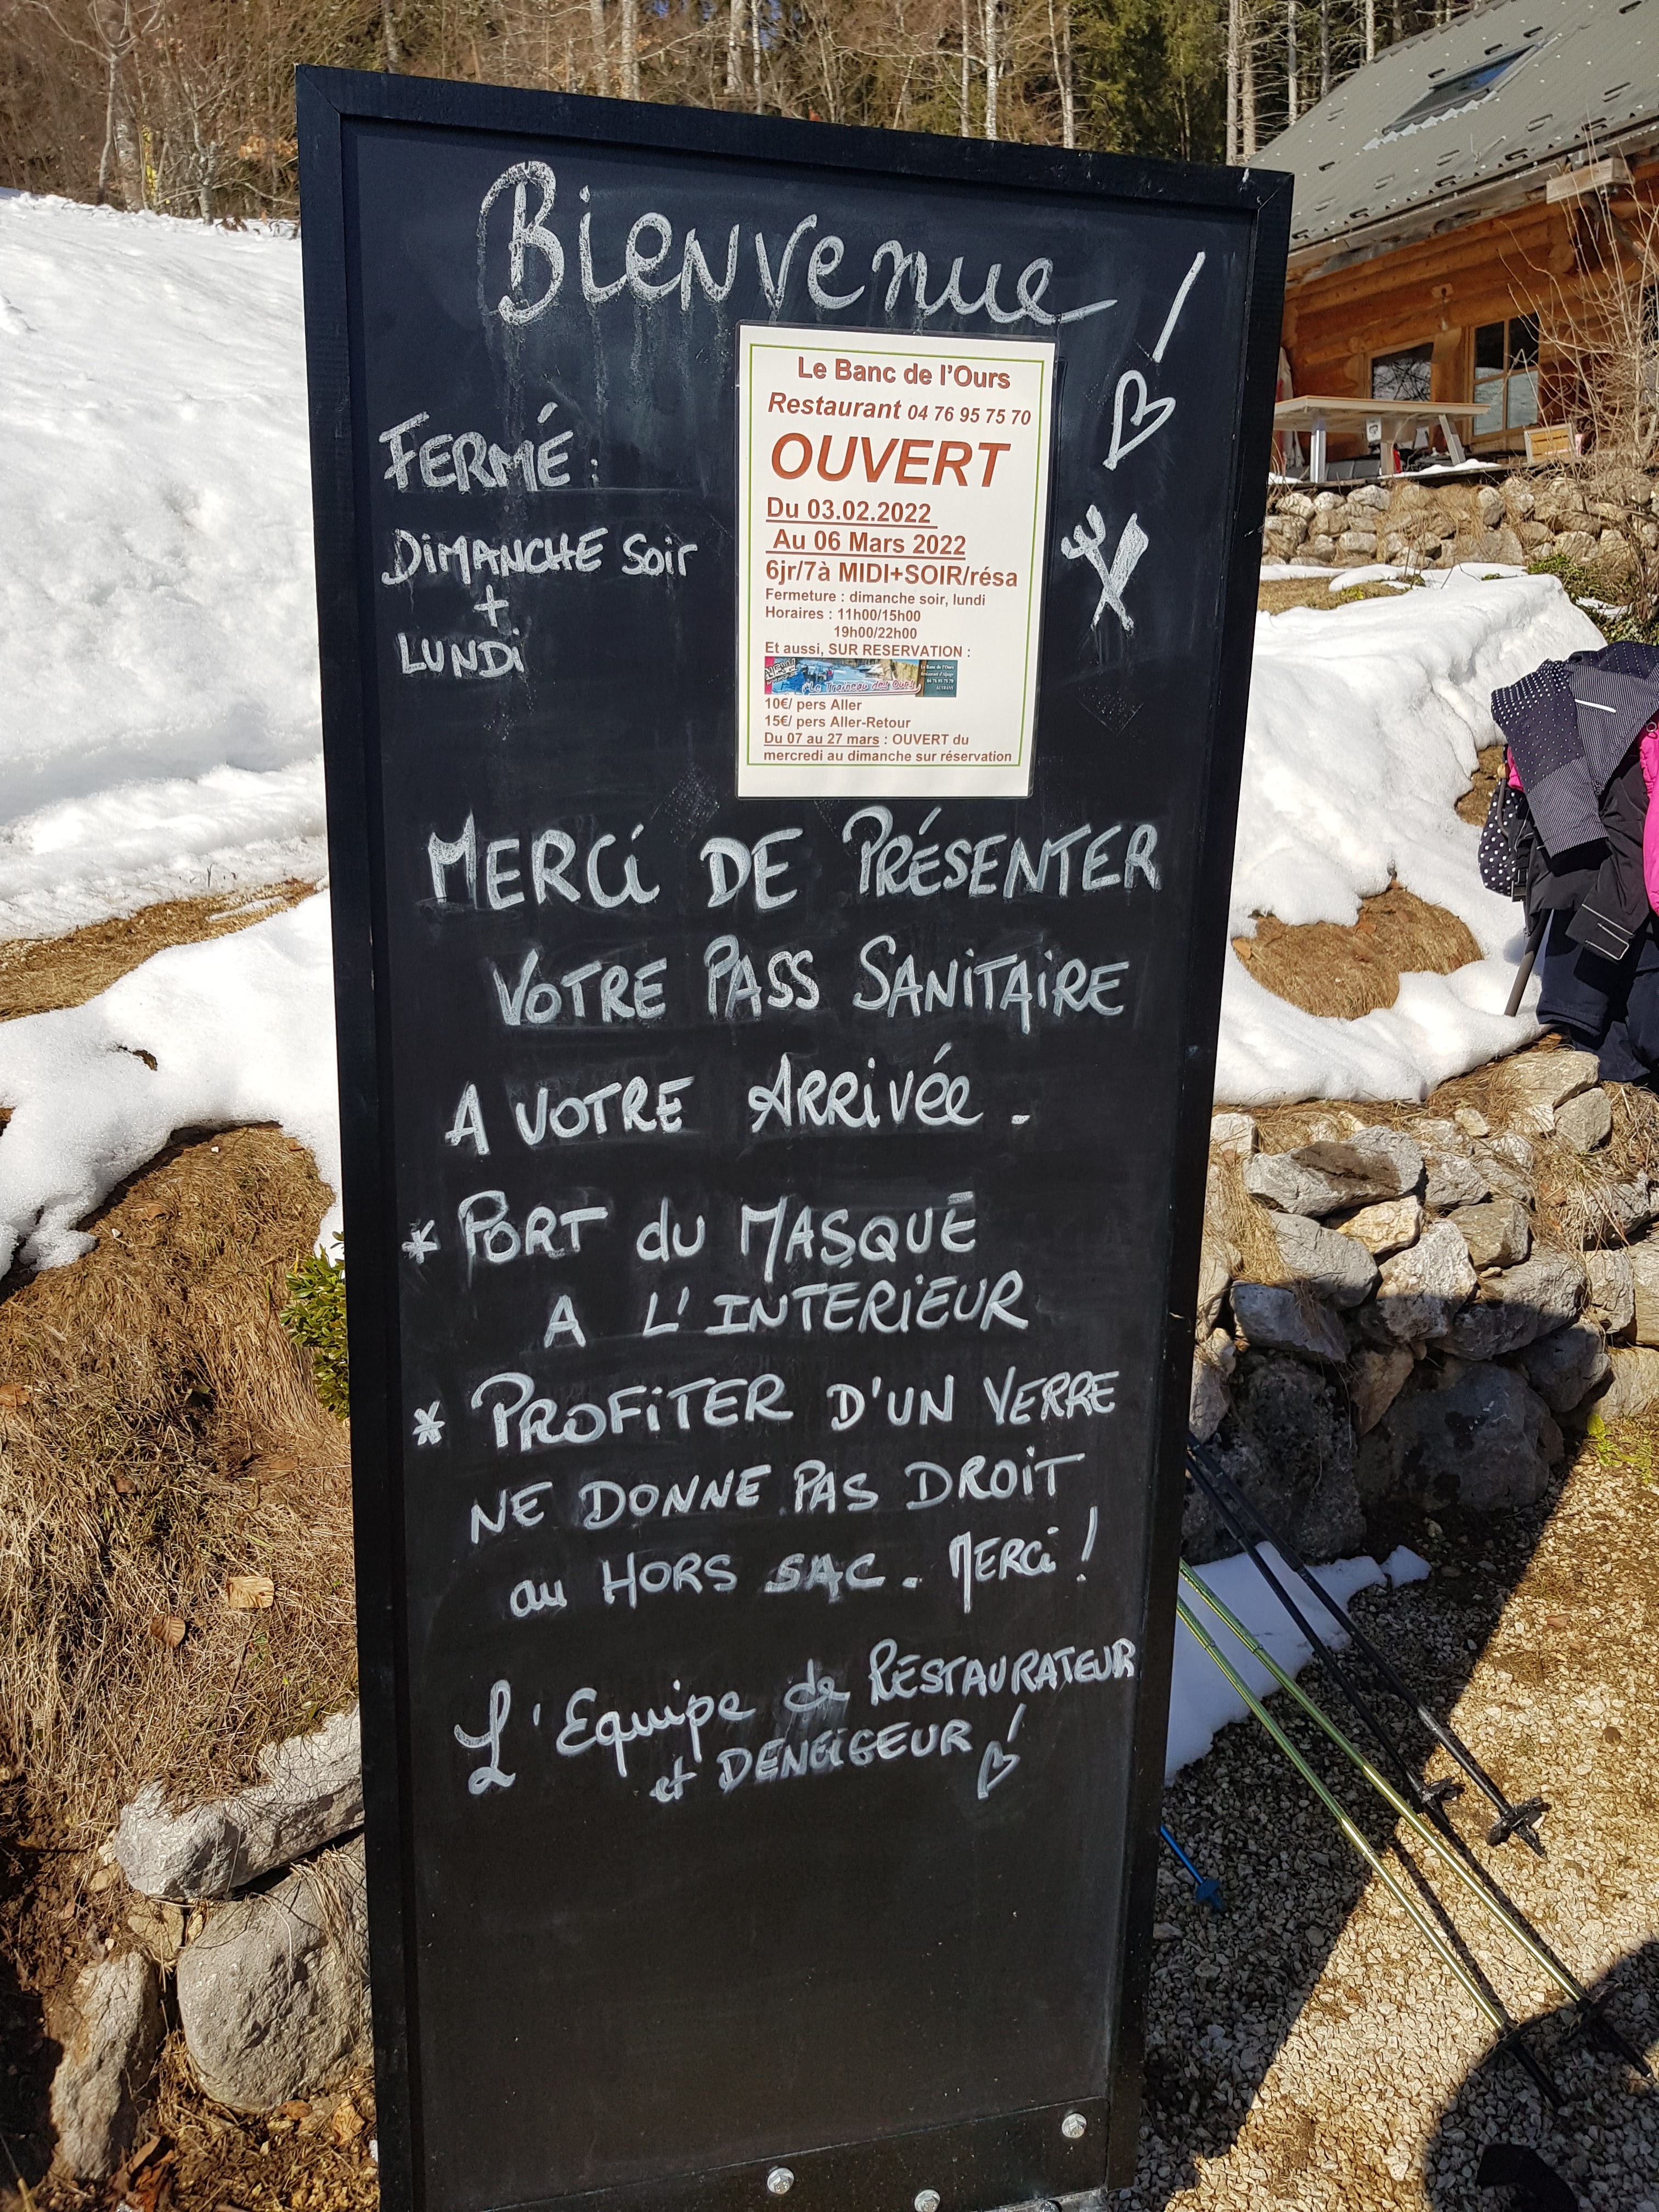 Bienvenue !
FERMÉ :
DiMANCHE Soir
+
LUNDi
Le Banc de l'Ours
Restaurant 04 76 95 75 70
OUVERT
Du 03.02.2022
Au 06 Mars 2022
6jr/7à MIDI+SOIR/résa
Fermeture : dimanche soir, lundi
Horaires : 11h00/15h00
19h00/22h00
Et aussi, SUR RESERVATION :
Le Traineau des Ours
10€/ pers Aller
15€/ pers Aller-Retour
Du 07 au 27 mars : OUVERT du
mercredi au dimanche sur réservation
MERCi DE PRÉSENTER
VOTRE PASS SANiTAiRE
A VOTRE ARRiVée .
* PORT du MASQUE
A L'INTERiEUR
* PROFiTER D'UN VERRE
NE DONNE PAS DROiT
au HORS SAC . MERCi !
L'Equipe de RESTAURATEUR
et DENEIGEUR !